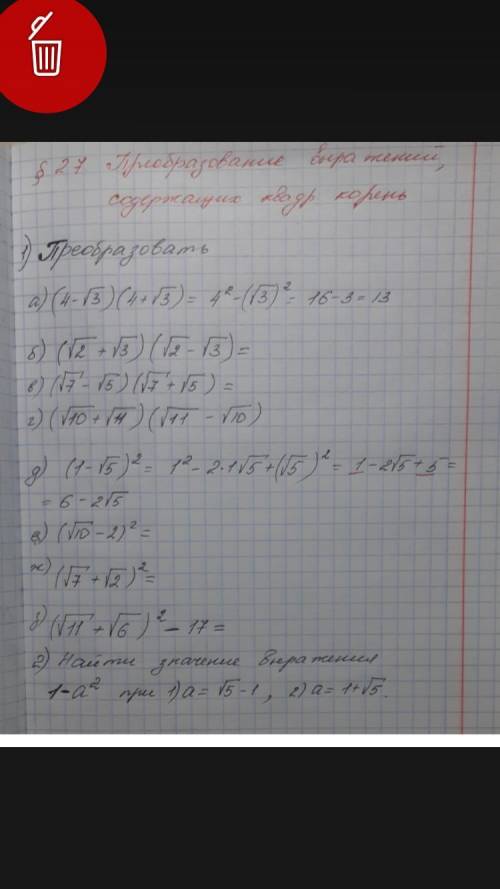 § 27 Преобразование выражений,
содержащих квадр корень
1) Преобразовать
а) (4-√3)(4+√3) = 4² - (√3)² = 16-3 = 13
б) (√2 + √3)(√2 - √3) =
в) (√7 - √5)(√7 + √5) =
г) (√10 + √11)(√11 - √10)
д) (1-√5)² = 1² - 2·1√5 + (√5)² = 1 - 2√5 + 5 =
= 6 - 2√5
е) (√10 - 2)² =
ж) (√7 + √2)² =
(√11 + √6)² - 17 =
2) Найти значение выражения
1-a² при 1) a = √5 - 1, 2) a = 1+√5.